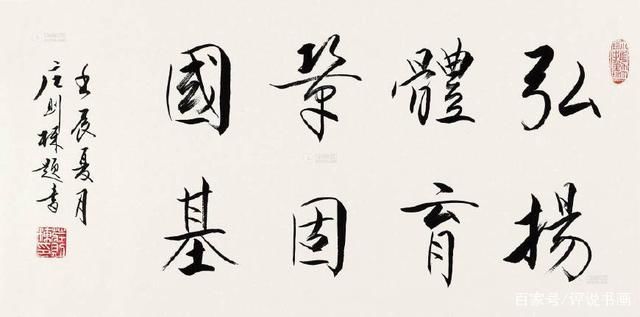 弘揚
體育
鞏固
國基
壬辰夏月
庄則棟題書
百家号/评说书画